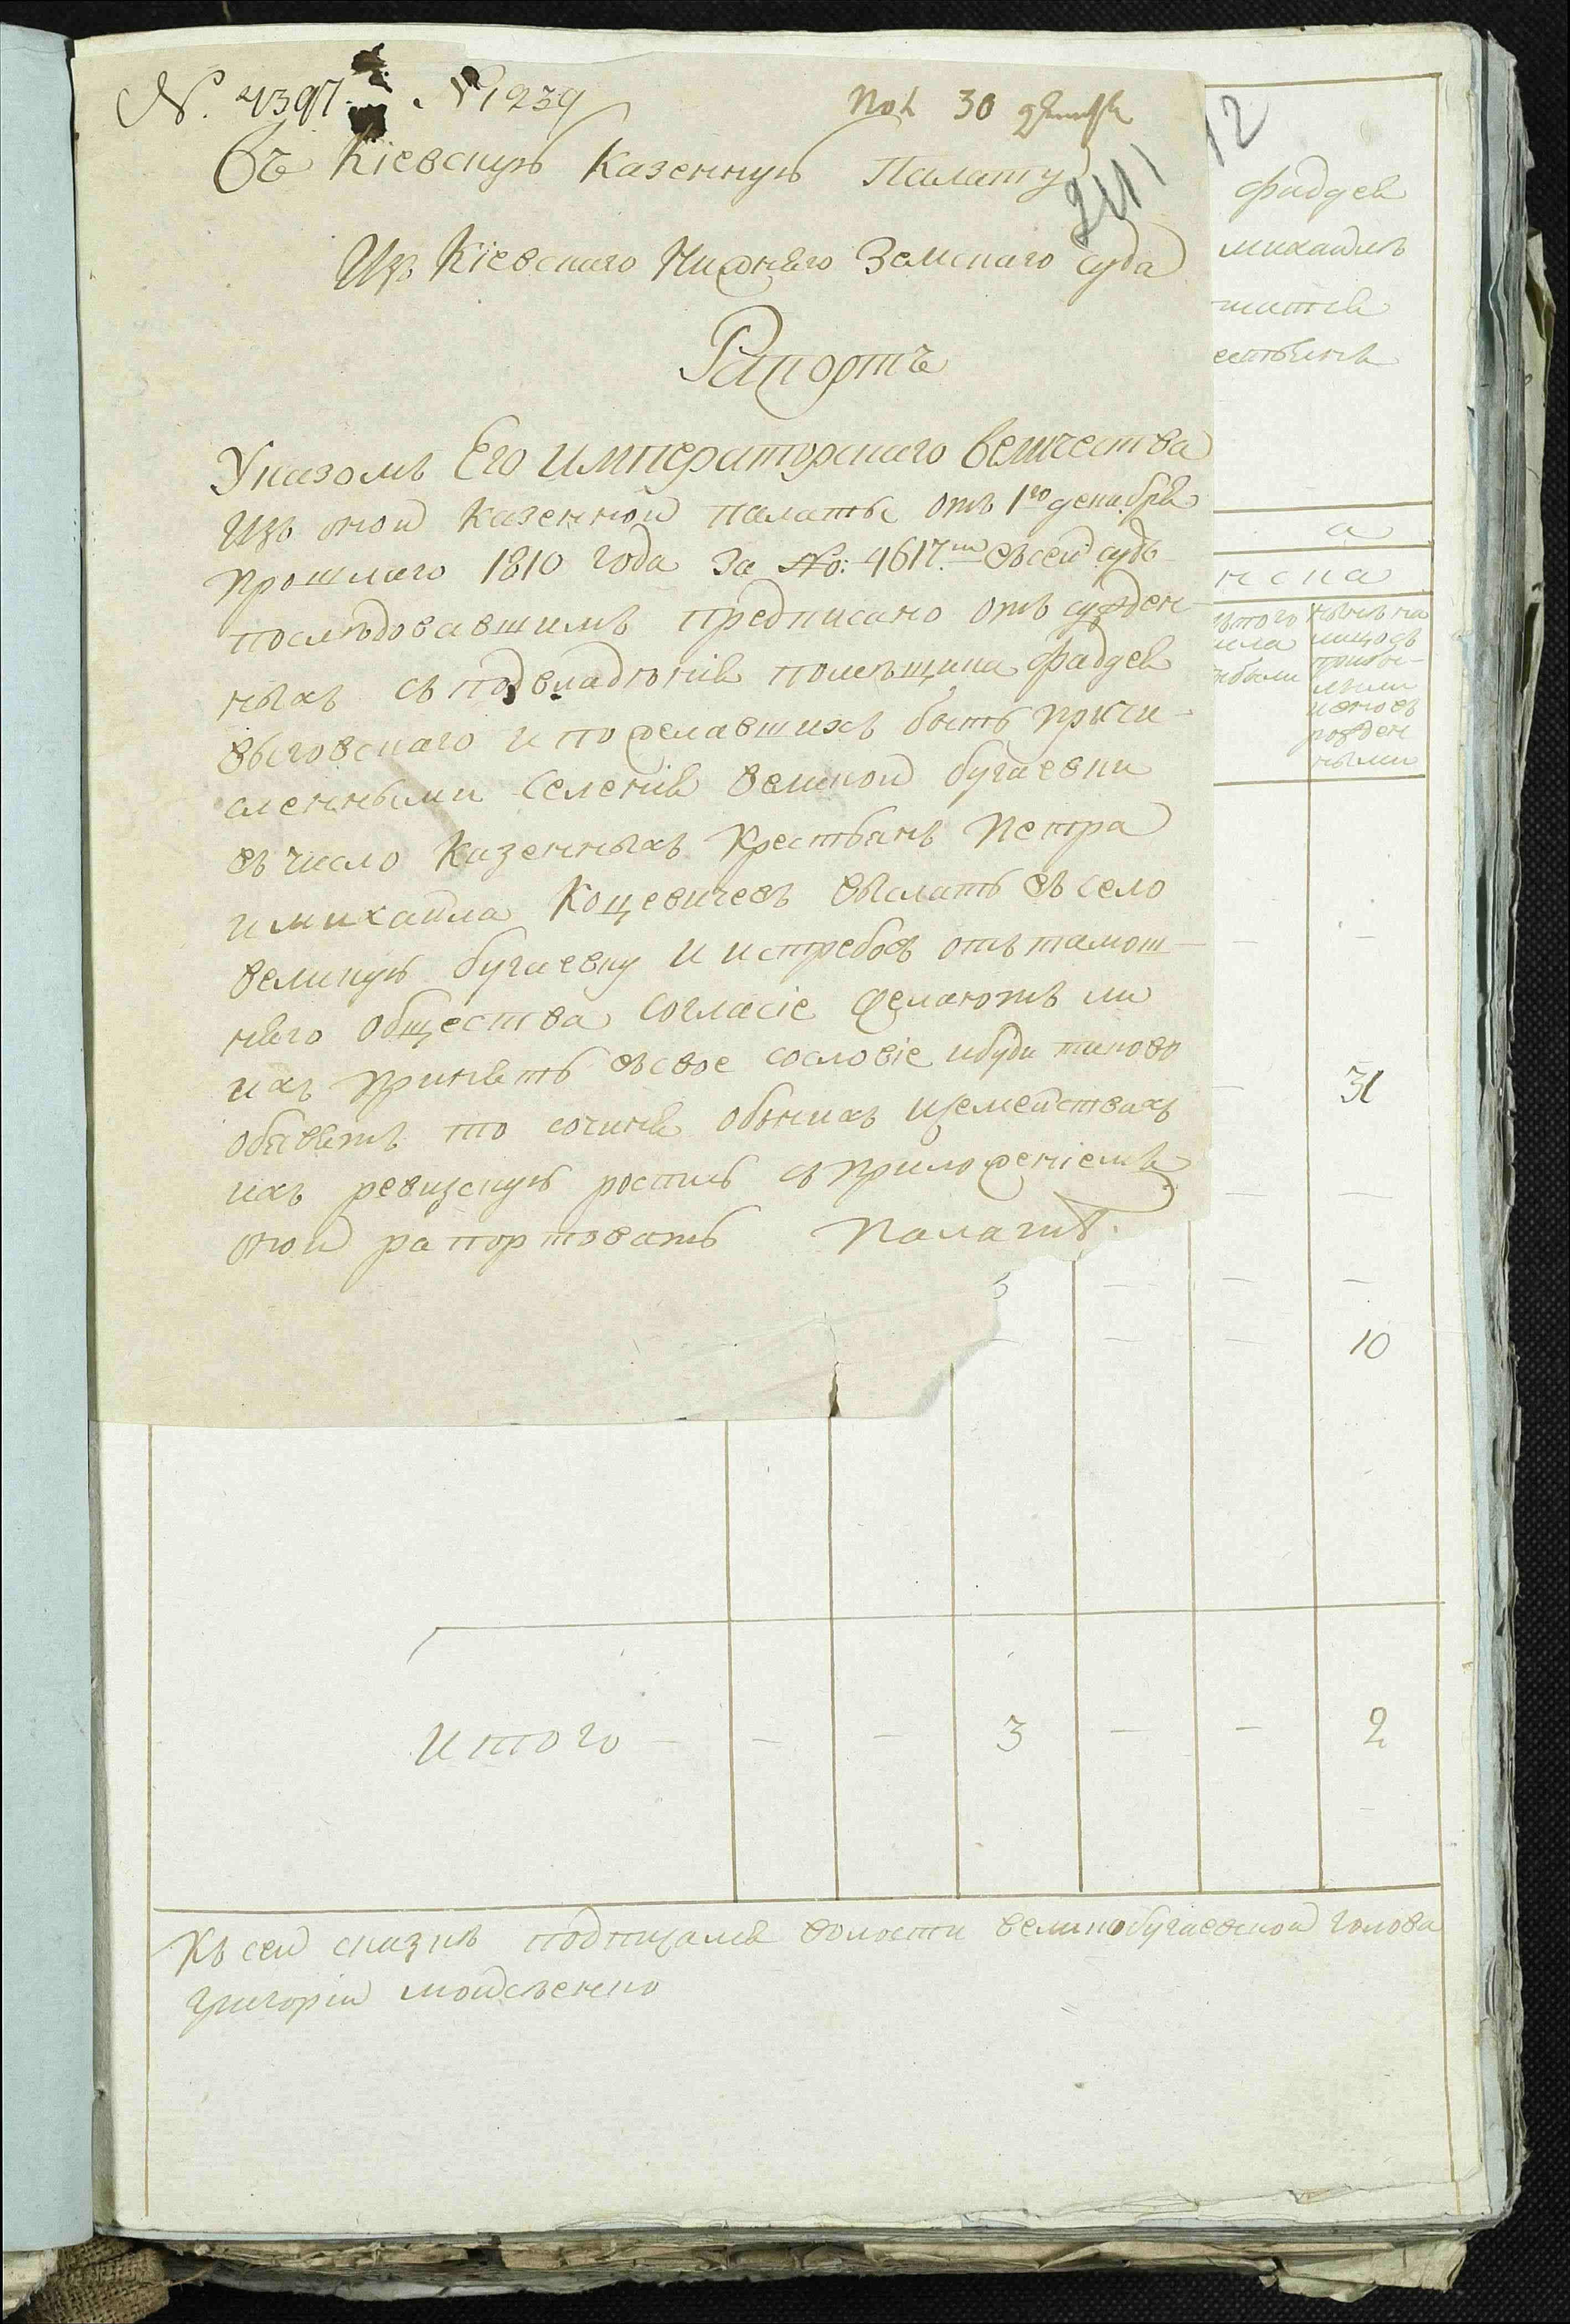 №. 4397. № 1239
Пол 30 декабря
211
12
Въ Кіевскую Казенную Палату
Изъ Кіевскаго Нижняго Земскаго суда
Рапортъ
Указомъ Его Императорскаго Величества
Изъ оной Казенной палаты отъ 1го декабря
прошлаго 1810 года За №: 4617.м въ сей судъ
последовавшимъ предписано отъ сужден-
ныхъ съ подвладения помещика Фаддея
Выговскаго и пожелавшихъ быть причи-
сленными селения Великой Бугаевки
въ число Казенныхъ Крестьянъ Петра
и Михайла Коцевичевъ выслать въ село
Великую Бугаевку и истребовъ отъ тамош-
няго общества Согласіе желаютъ ли
ихъ принять въ свое сословіе и буди таково
объявятъ то сочиня объ нихъ и семействахъ
ихъ ревизскую роспись съ приложеніемъ
оной рапортовать Палатѣ.
Фаддея
Михайлъ
естьянъ
а
нска
ныне на
лицо съ
рожден
ными
31
3
10
Итого - - - 3 - - 2
Къ сей сказкѣ подписался волости Великобугаевской голова
Григорій Мойсѣенко